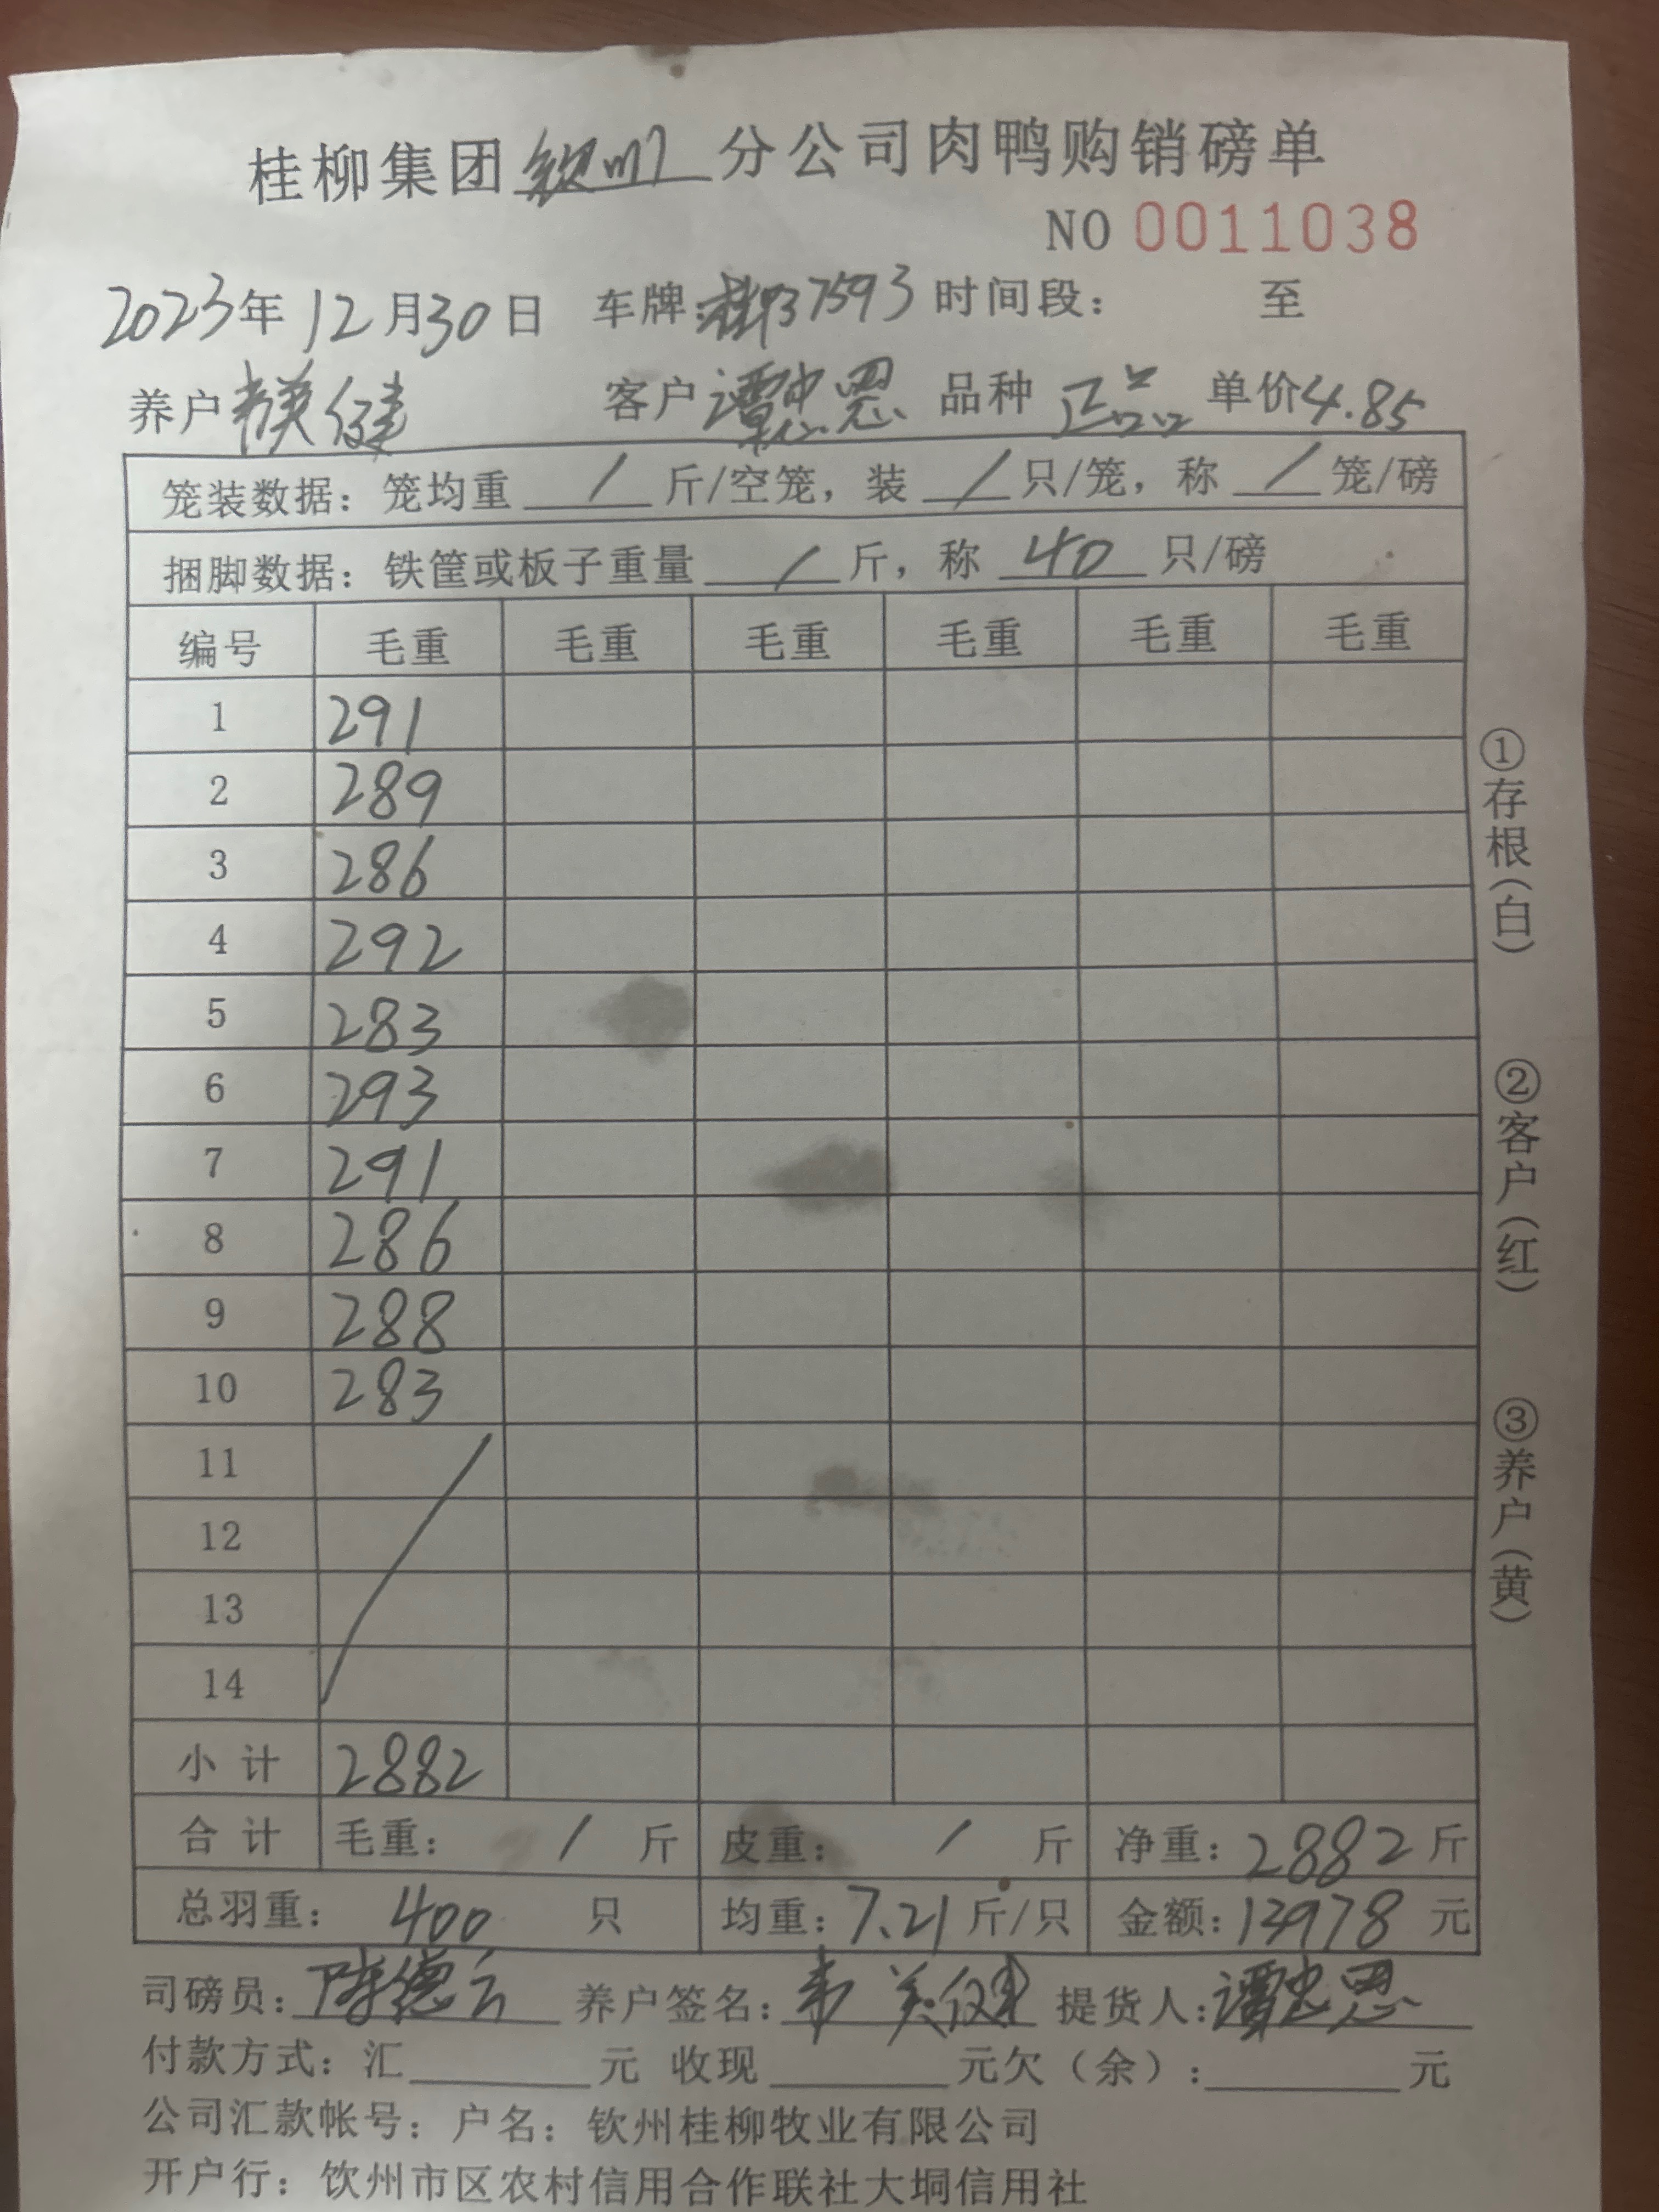 桂柳集团钦州分公司肉鸭购销磅单
NO 0011038
2023年12月30日 车牌: 7593 时间段: 至
养户 健 客户谭忠恩 品种 正品 单价4.85
笼装数据: 笼均重 / 斤/空笼, 装 / 只/笼, 称 / 笼/磅
捆脚数据: 铁筐或板子重量 / 斤, 称 40 只/磅
编号 毛重 毛重 毛重 毛重 毛重 毛重
1 291
2 289
3 286
4 292
5 283
6 293
7 291
8 286
9 288
10 283
11
12
13
14
小计 2882
合计 毛重: / 斤 皮重: / 斤 净重: 2882斤
总羽重: 400 只 均重: 7.21斤/只 金额: 13978 元
司磅员: 陈德云 养户签名: 韦美健 提货人: 谭忠恩
付款方式: 汇 元 收现 元欠(余): 元
公司汇款帐号: 户名: 钦州桂柳牧业有限公司
开户行: 钦州市区农村信用合作联社大垌信用社
①存根(白)
②客户(红)
③养户(黄)